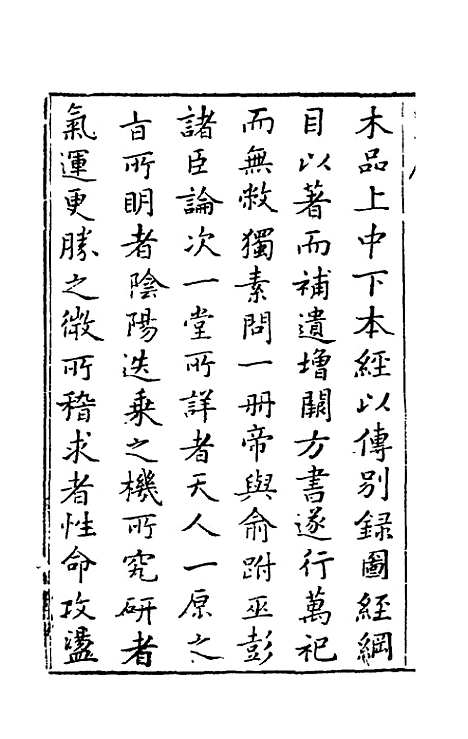 木品上中下本經以傳別錄圖經綱
目以著而補遺增闕方書遂行萬祀
而無敝獨素問一冊帝與俞跗巫彭
諸臣論次一堂所詳者天人一原之
旨所明者陰陽迭乗之機所究研者
氣運更勝之微所稽求者性命攻盪